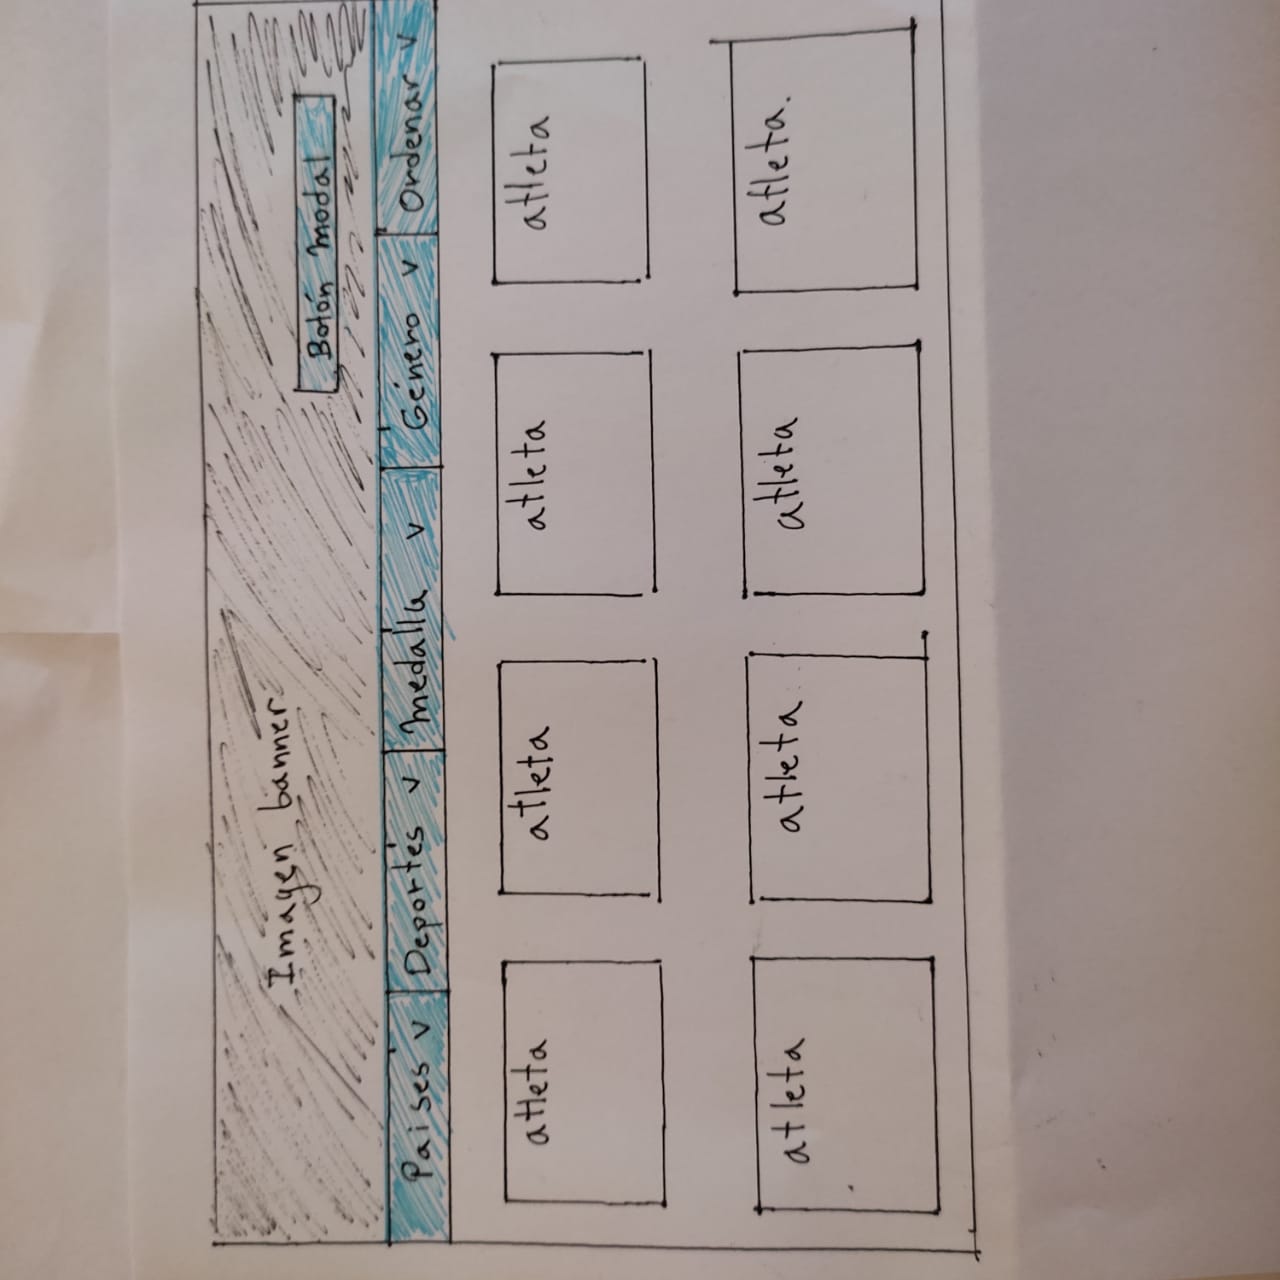 Imagen banner
Botón modal
Paises v Deportes v medalla v Género v Ordenar v
atleta atleta atleta atleta
atleta atleta atleta atleta.